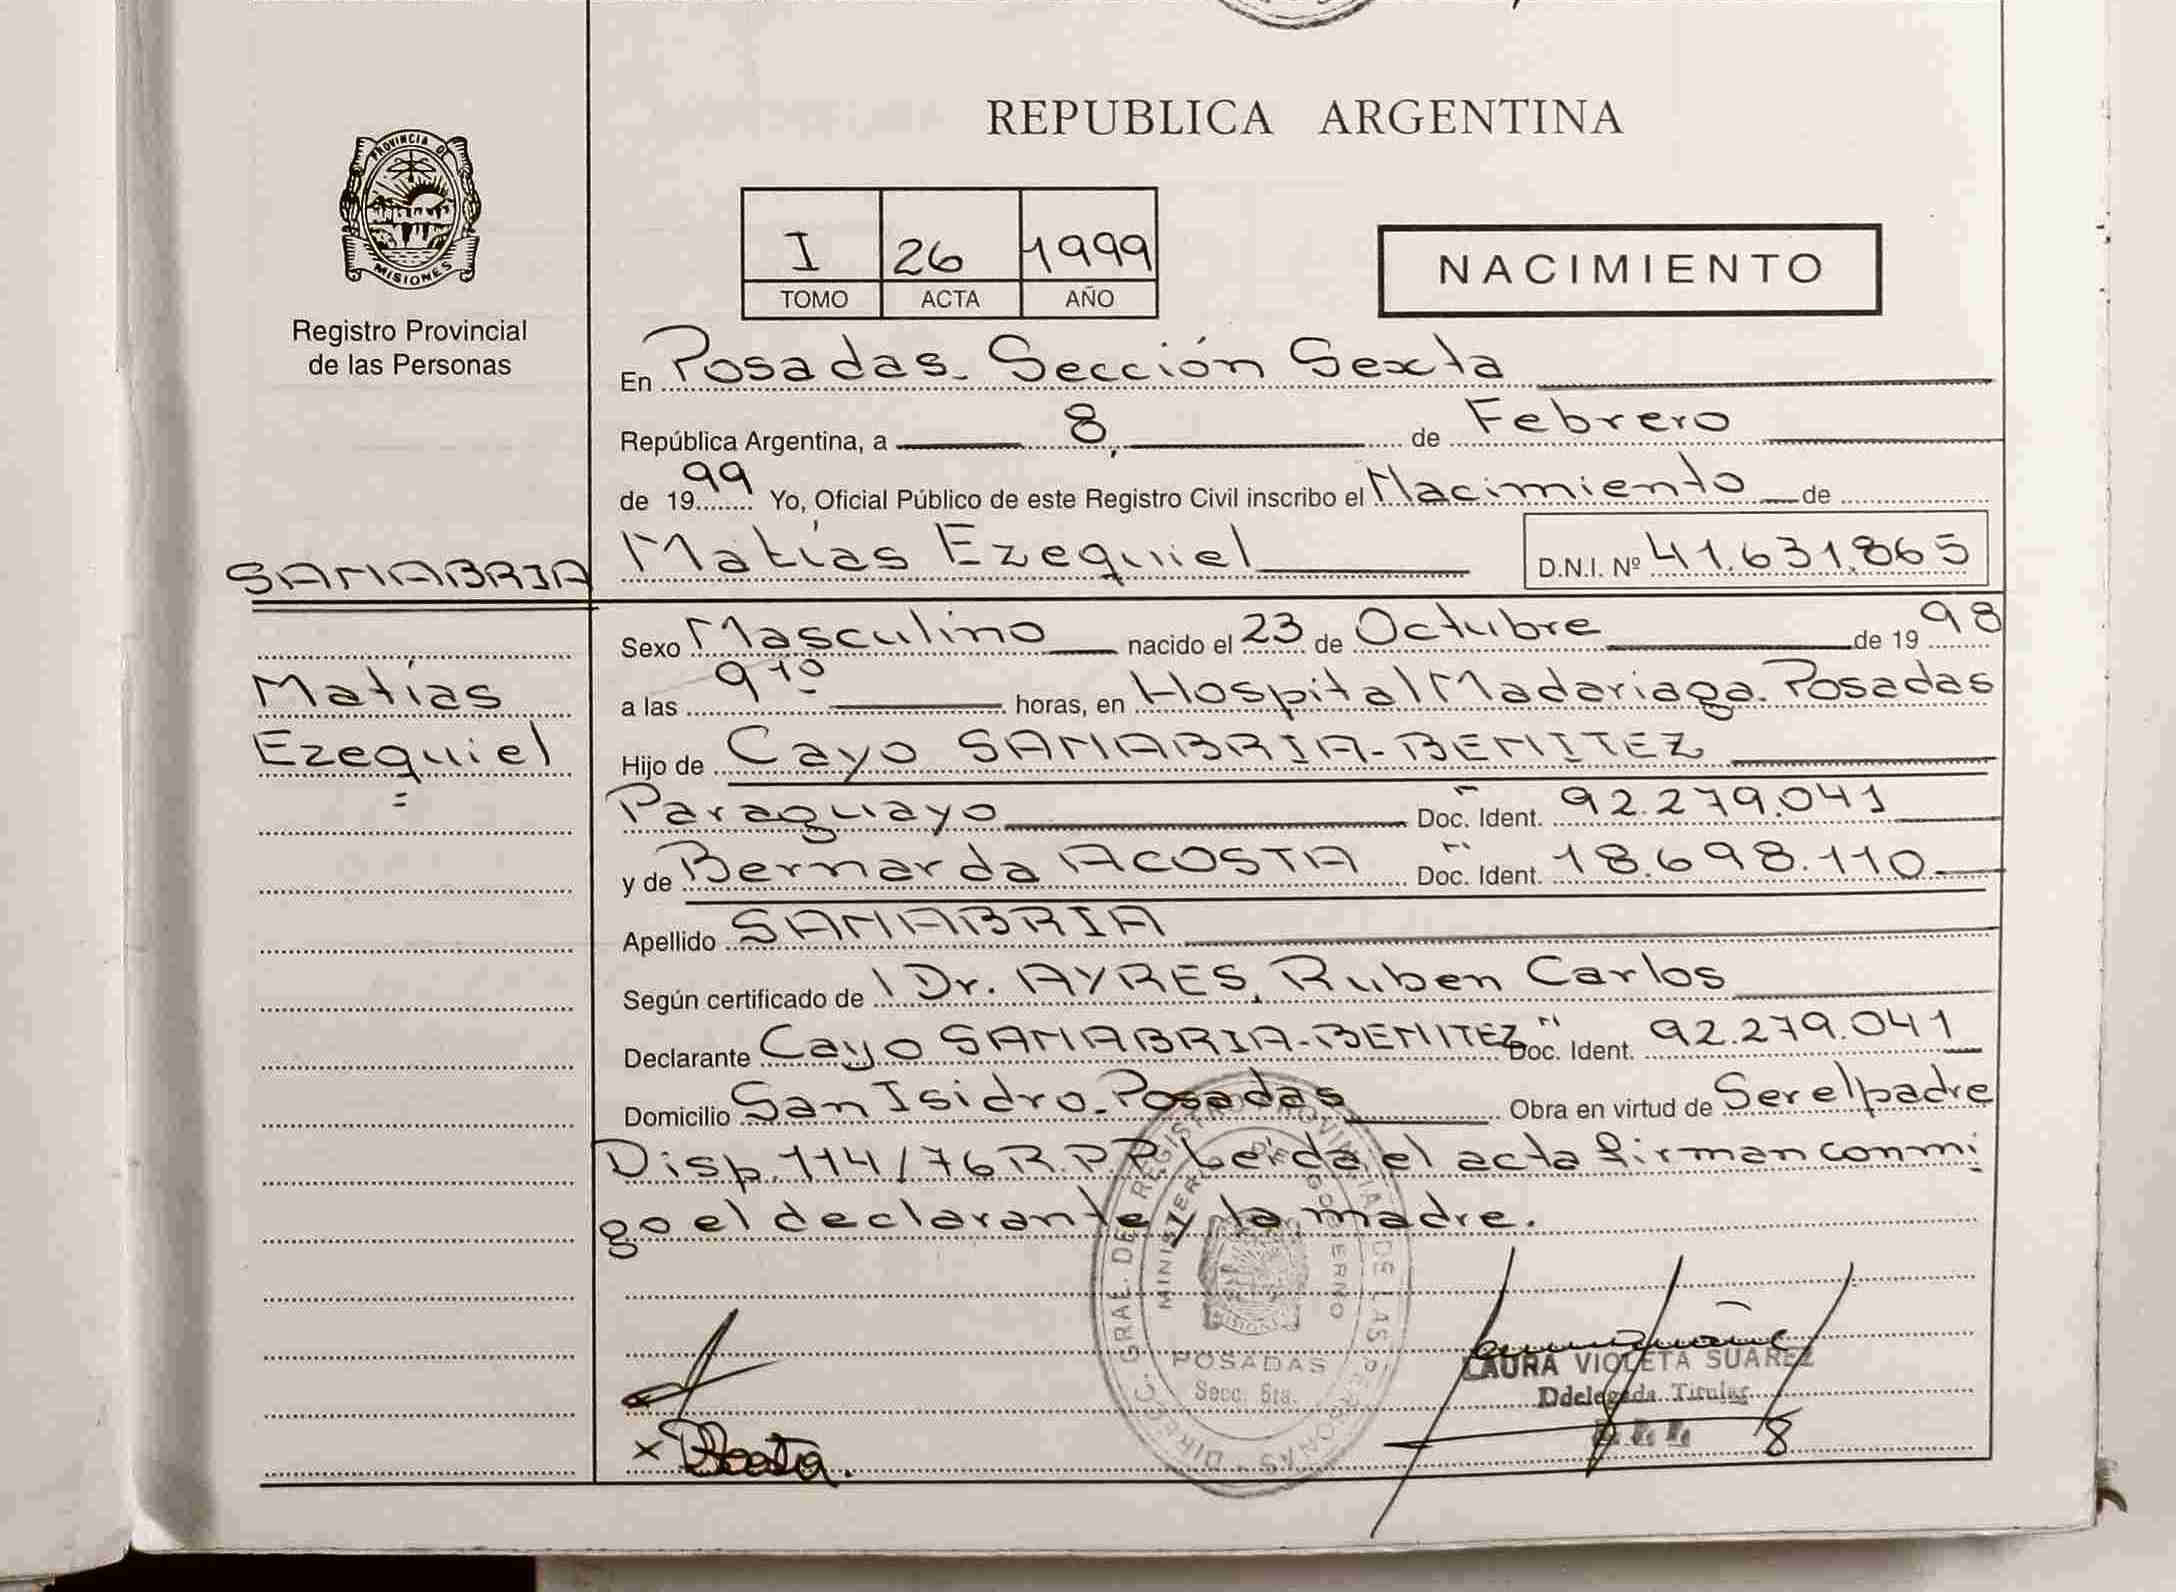 PROVINCIA DE
MISIONES
Registro Provincial
de las Personas
REPUBLICA ARGENTINA
I 26 1999
TOMO ACTA AÑO
NACIMIENTO
En Posadas. Sección Sexta
República Argentina, a 8, de Febrero
de 1999 Yo, Oficial Público de este Registro Civil inscribo el Nacimiento de
SANABRIA Matías Ezequiel D.N.I. Nº 41.631.865
Sexo Masculino nacido el 23 de Octubre de 1998
Matías
Ezequiel
=
a las 9 10 horas, en Hospital Madariaga. Posadas
Hijo de Cayo SANABRIA-BENITEZ
Paraguayo Doc. Ident. 92.279.041
y de Bernarda ACOSTA Doc. Ident. 18.698.110
Apellido SANABRIA
Según certificado de Dr. AYRES, Ruben Carlos
Declarante Cayo SANABRIA-BENITEZ Doc. Ident. 92.279.041
Domicilio San Isidro. Posadas Obra en virtud de Ser el padre
Disp. 114/76 R.P.P. Leída, el acta firman conmi
go el declarante y la madre.
DIRECC. GRAL. DEL REGISTRO PROVINCIAL DE LAS PERSONAS
MINISTERIO DE GOBIERNO
MISIONES
POSADAS
Secc. 6ta.
LAURA VIOLETA SUAREZ
Ddelegada Titular
8